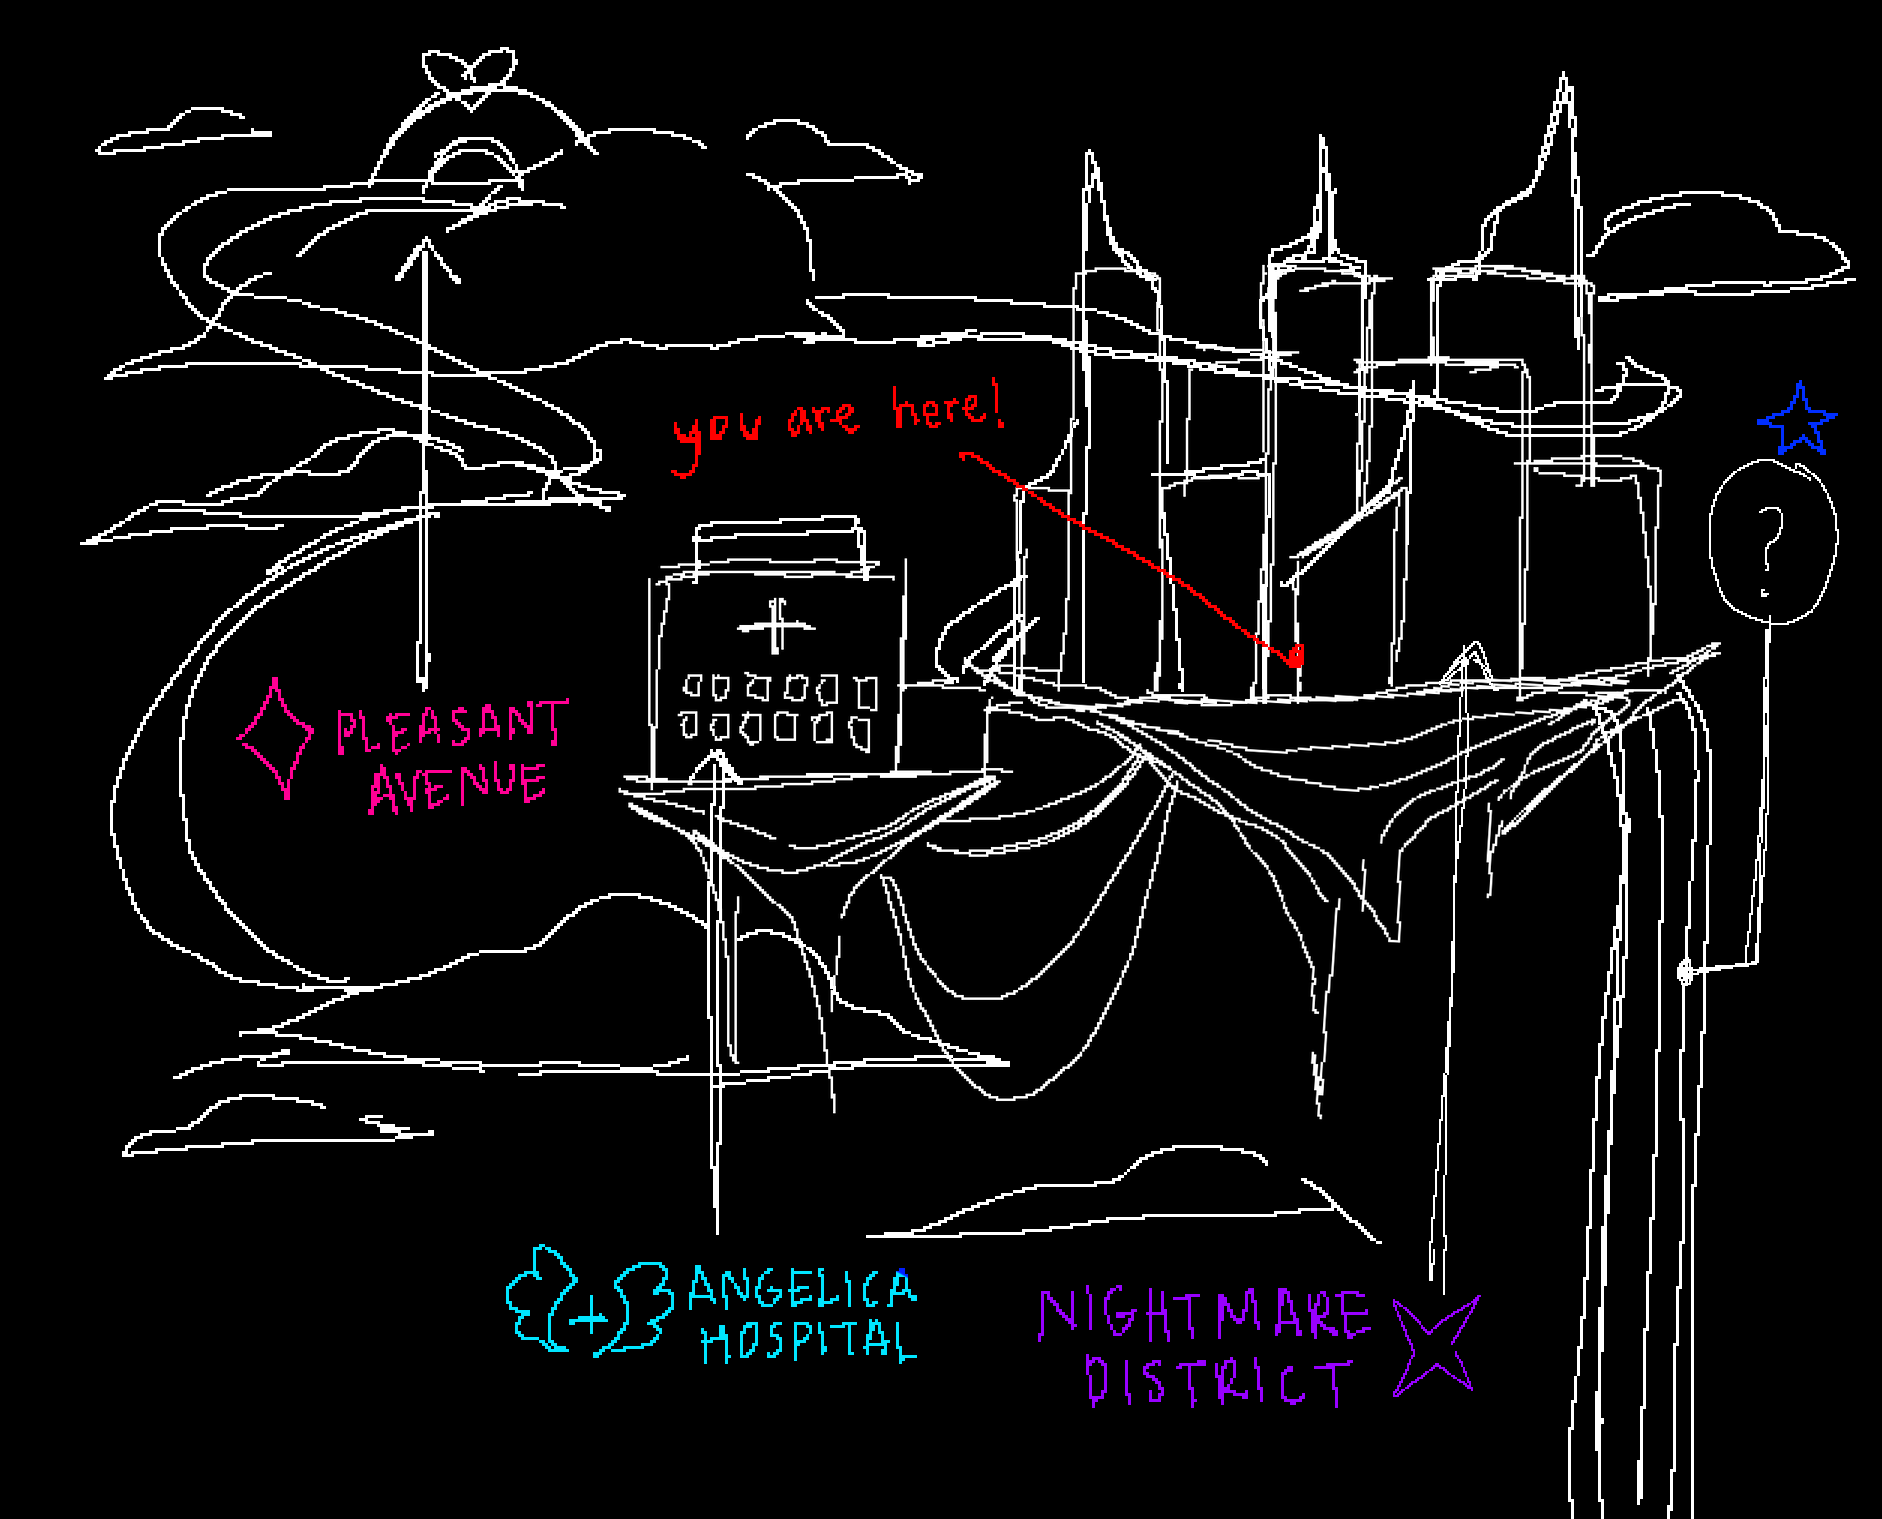 you are here!
?
PLEASANT
AVENUE
ANGELICA
HOSPITAL
NIGHTMARE
DISTRICT